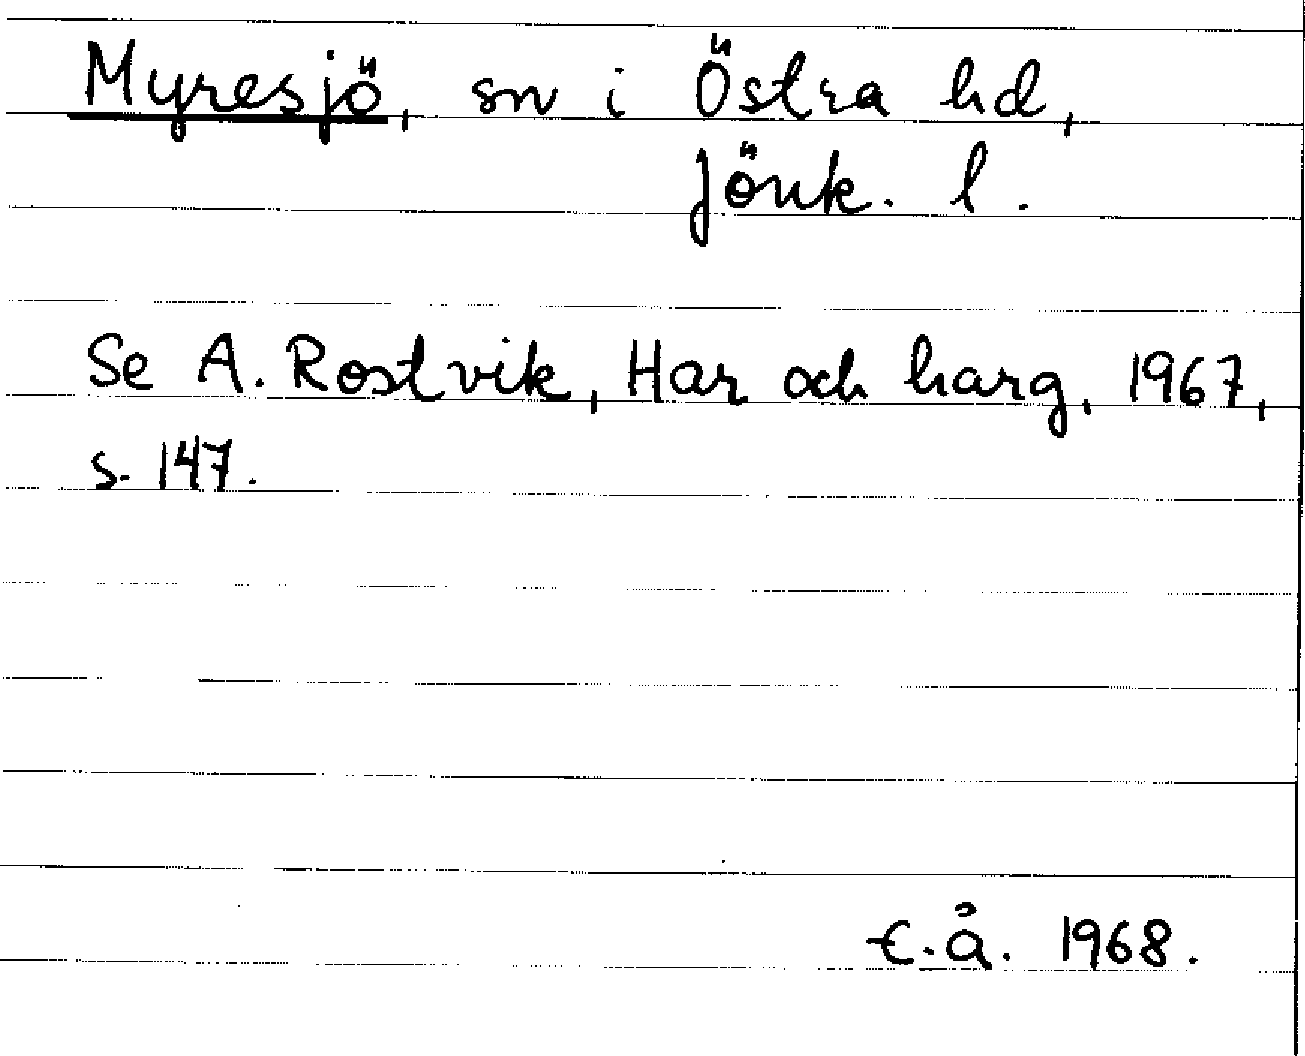 Myresjö, sn i Östra hd,
Jönk. l.
Se A. Rostvik, Har och harg, 1967,
s. 147.
E.Å. 1968.